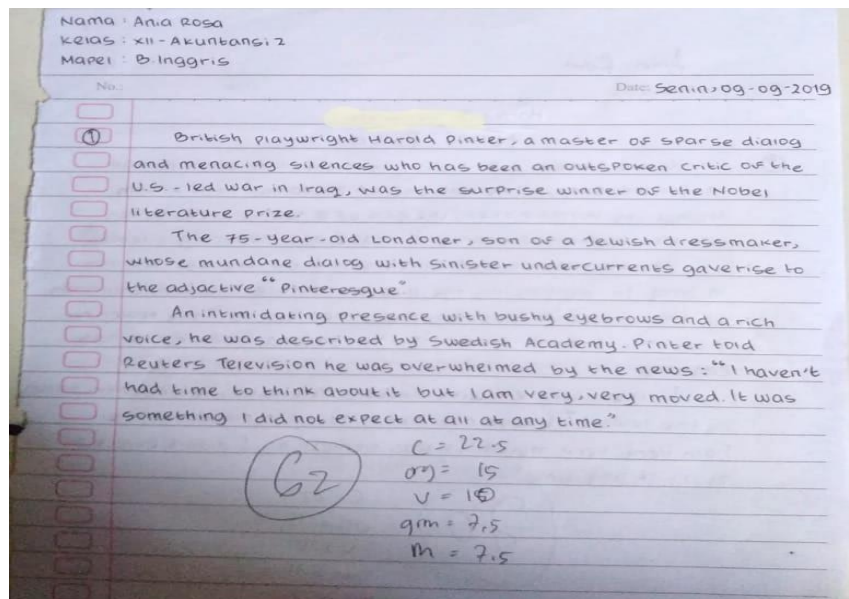 Nama : Ania Rosa
Kelas : XII - Akuntansi 2
Mapel : B. Inggris
No.:
Date: Senin, 09-09-2019
① British playwright Harold Pinter, a master of sparse dialog
and menacing silences who has been an outspoken critic of the
U.S.-led war in Iraq, was the surprise winner of the Nobel
literature prize.
The 75-year-old Londoner, son of a Jewish dressmaker,
whose mundane dialog with sinister undercurrents gave rise to
the adjactive "Pinteresque"
An intimidating presence with bushy eyebrows and a rich
voice, he was described by Swedish Academy. Pinter told
Reuters Television he was overwhelmed by the news : "I haven't
had time to think about it but I am very, very moved. It was
something I did not expect at all at any time."
62
C = 22.5
org = 15
V = 10
grm = 7,5
m = 7.5